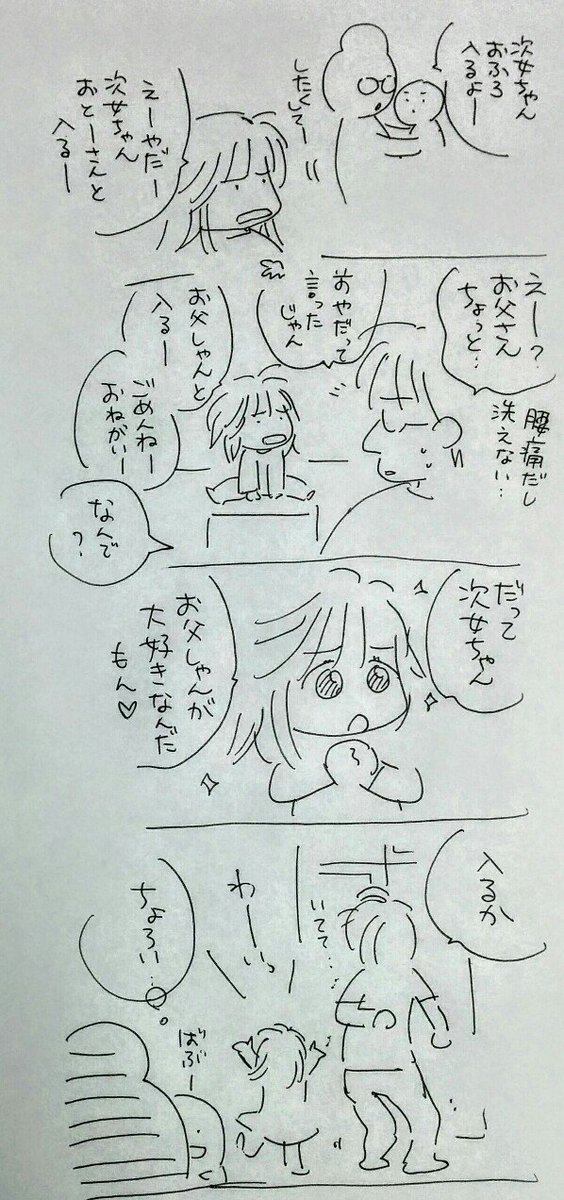 次女ちゃん
おふろ
入るよー
したくしてー
えーやだー
次女ちゃん
おとーさんと
入るー
えー?
お父さん
ちょっと…
腰痛だし
洗えない…
前やだって
言った
じゃん
お父しゃんと
入るー
ごめんねー
おねがいー
なんで
?
だって
次女ちゃん
お父しゃんが
大好きなんだ
もん♡
入るか
いてて…
わーいっ
ちょろい…
ばぶー